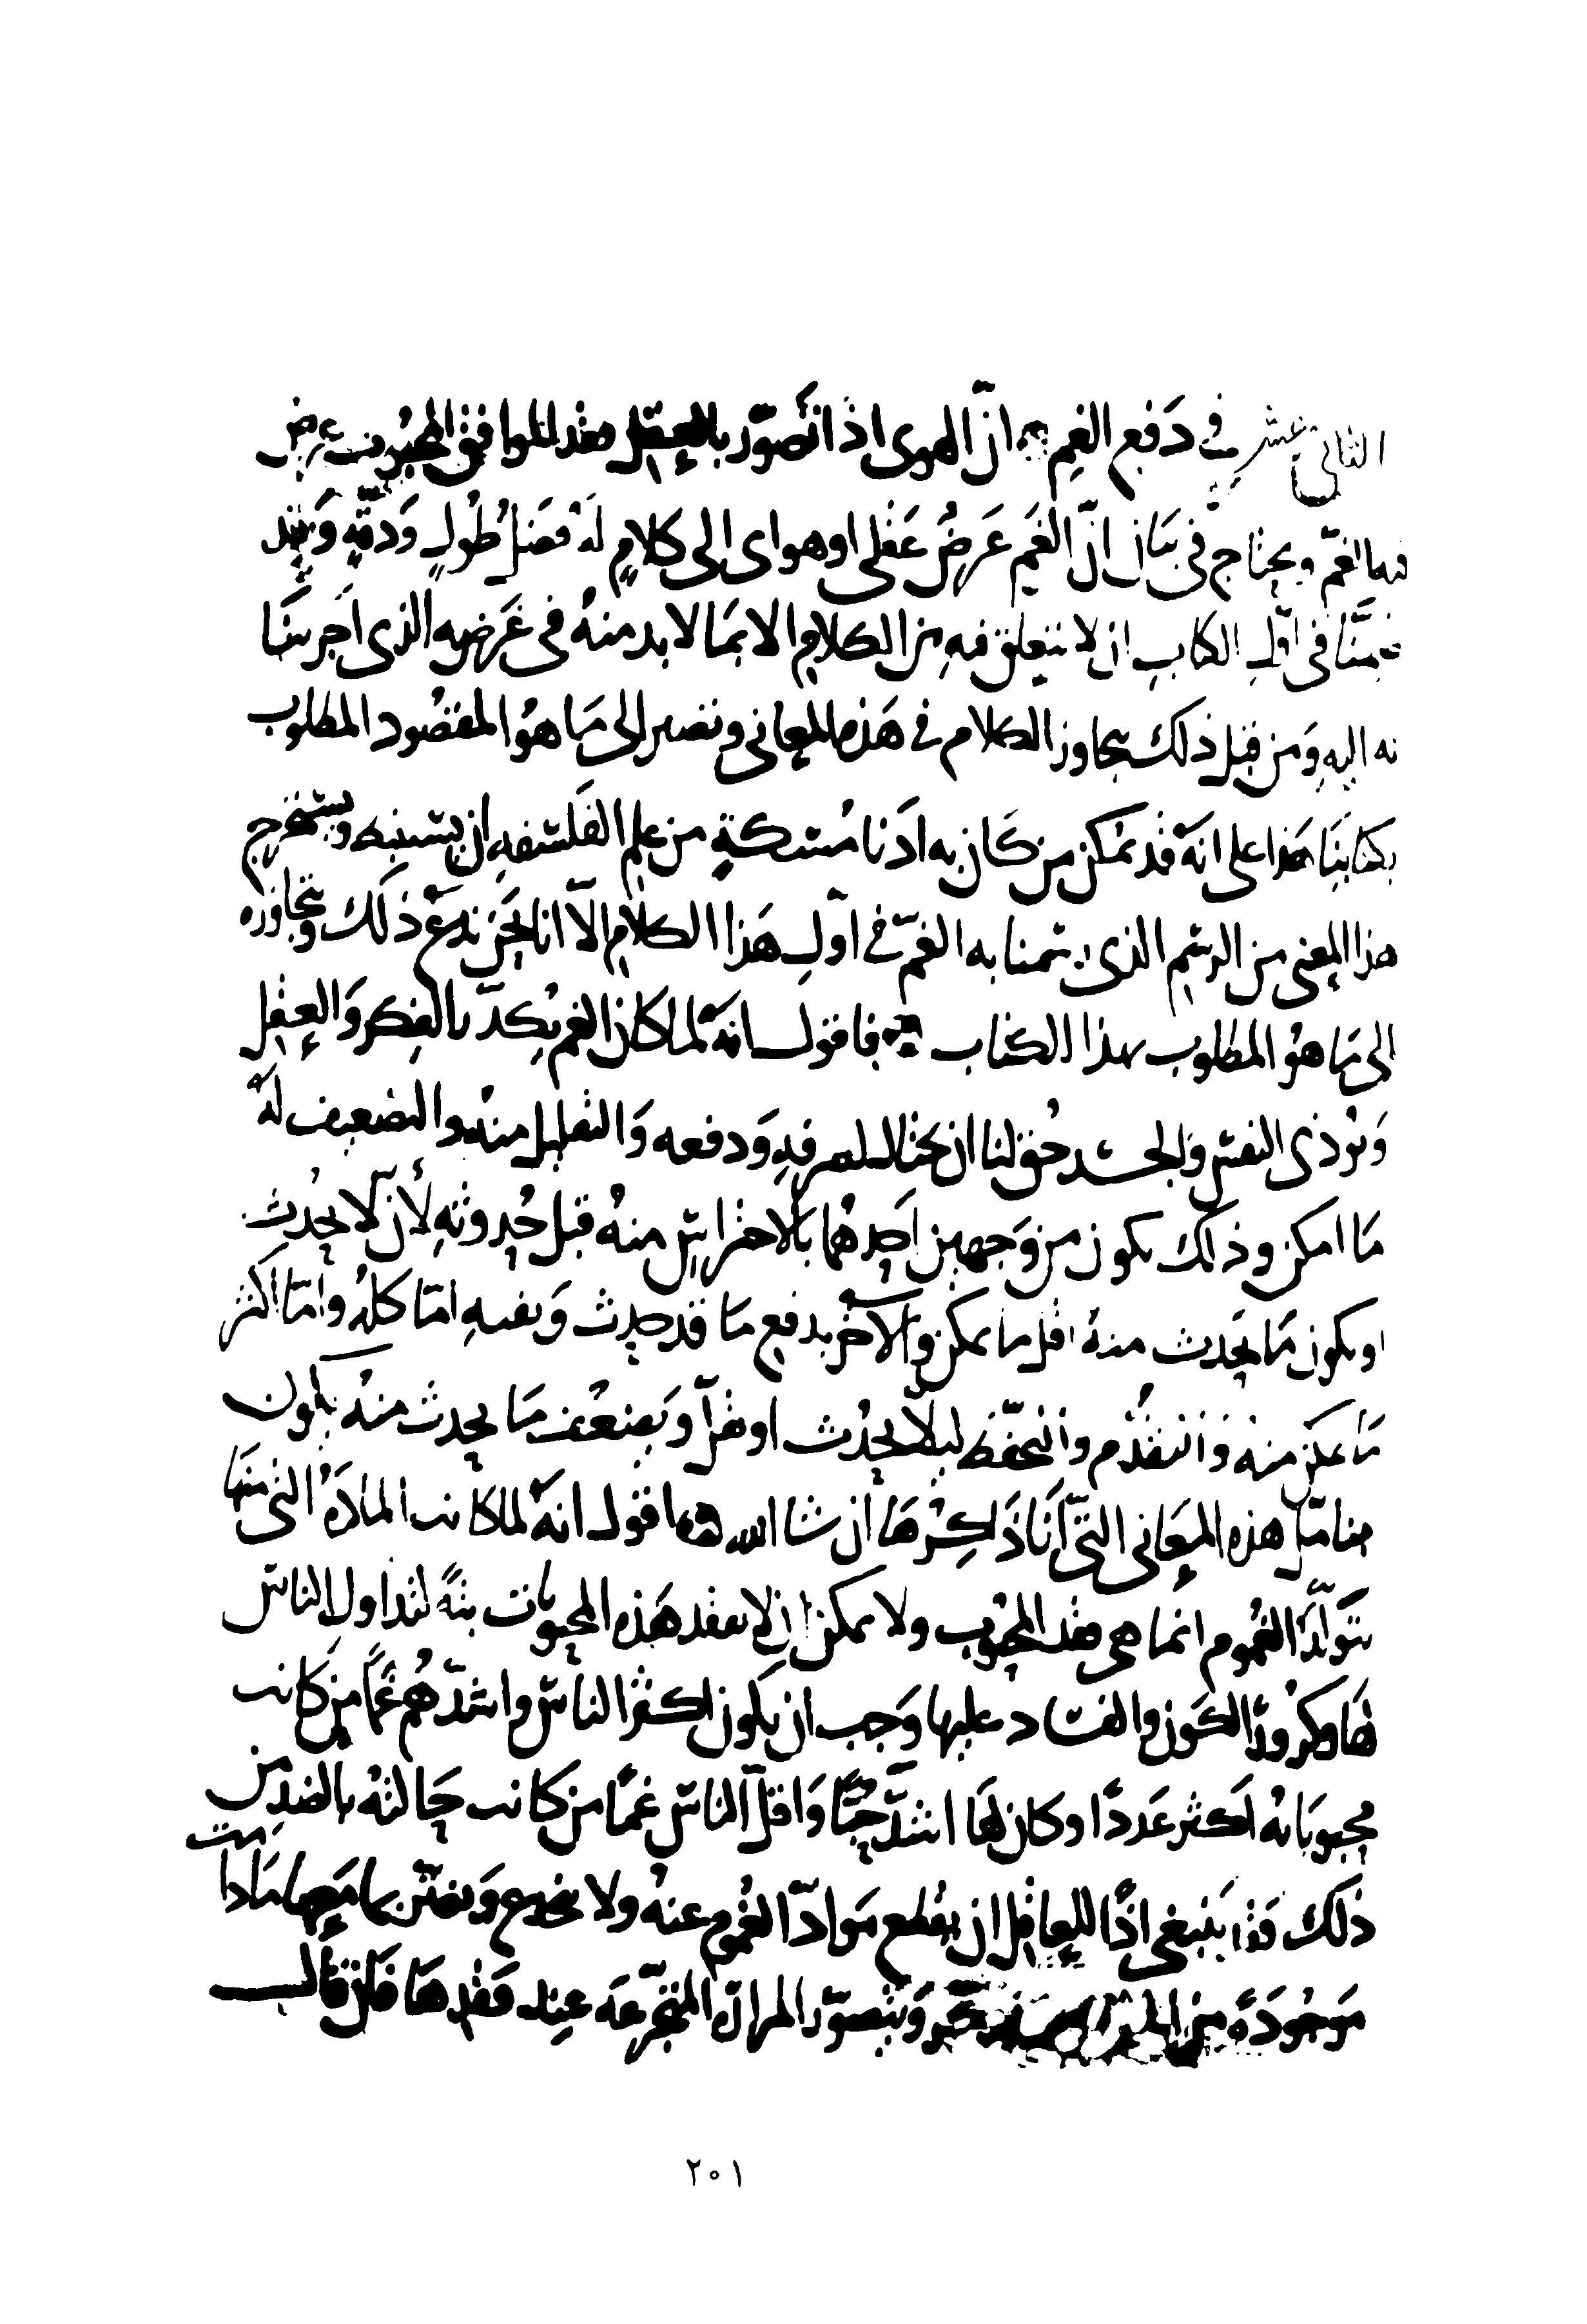 الثاني عشر في دفع الغم ان الهوى اذا تصور بالعقل فقد الموافق المحبوب عرض
فيها الغم ويحتاج في بيان ان الغم عرض عقلي او هواى الى كلام له فضل طول ودقة وقد
ضمنا في اول الكتاب ان لا نتعلق فيه من الكلام الا بما لا بد منه في غرضه الذي اجرينا
به اليه ومن قبل ذلك نتجاوز الكلام في هذه المعاني ونصير الى ما هو المقصود المطلوب
بكتابنا هذا على انه قد يمكن من كان به ادنا مسكة من علم الفلسفه ان يستنبط ويستخرج
هذا المعنى من الرسم الذي رسمنا به الغم في اول هذا الكلام الا انا نحن ندع ذلك ونتجاوزه
الى ما هو المطلوب بهذا الكتاب فاقول انه لما كان الغم يكدر الفكر والعقل
وتوذى النفس والجسد حق لنا ان نحتال لصرفه ودفعه والتقليل منه والتضعيف له
ما امكن وذلك يكون من وجهين احدهما بالاحتراس منه قبل حدوثه لأن لا يحدث
او يكون ما يحدث منه اقل ما يمكن والآخر بدفع ما قد حدث ونفيه اما كله واما اكثر
ما يمكن منه والتقدم والتحفظ ليلا يحدث او يقل ويضعف ما يحدث منه يكون
بتامل هذه المعاني التي انا ذاكرها ان شا الله فاقول انه لما كانت المادة التي منها
تتولد الغموم انما هي فقد المحبوب ولا يمكن ان لا تفقد هذه المحبوبات بتة لتداول الناس
لها وكرور الكون والفساد عليها وجب ان يكون اكثر الناس واشدهم غما من كانت
محبوباته اكثر عددا وكان لها اشد حبا واقل الناس غما من كانت حالته بالضد من
ذلك فقد ينبغي اذا للعاقل ان يقطع مواد الغموم عنه ولا يخدع ويغتر بما معها ما دامت
موجودة من ويتصور المرارة المتجرعة عند فقدها فان قال
٢٠١